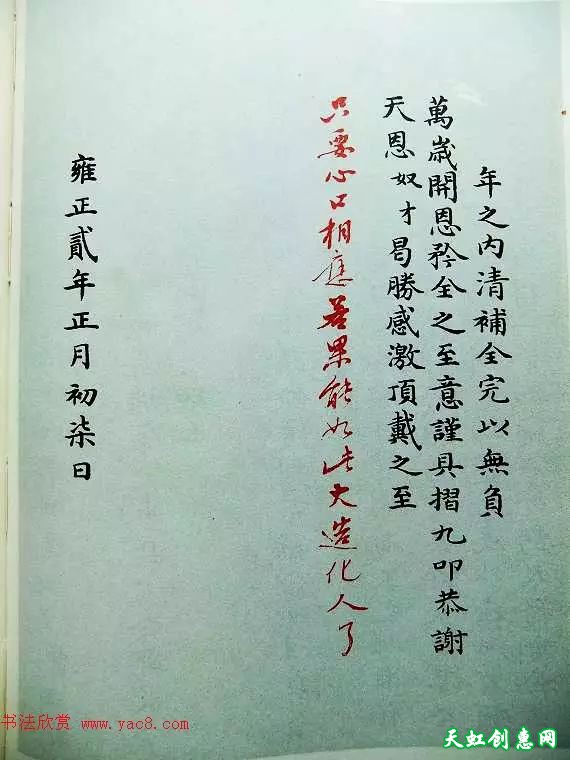 年之内清補全完以無負
萬歲開恩矜全之至意謹具摺九叩恭謝
天恩奴才曷勝感激頂戴之至
只要心口相應若果能如此大造化人了
雍正貳年正月初柒日
书法欣赏 www.yac8.com
天虹创惠网